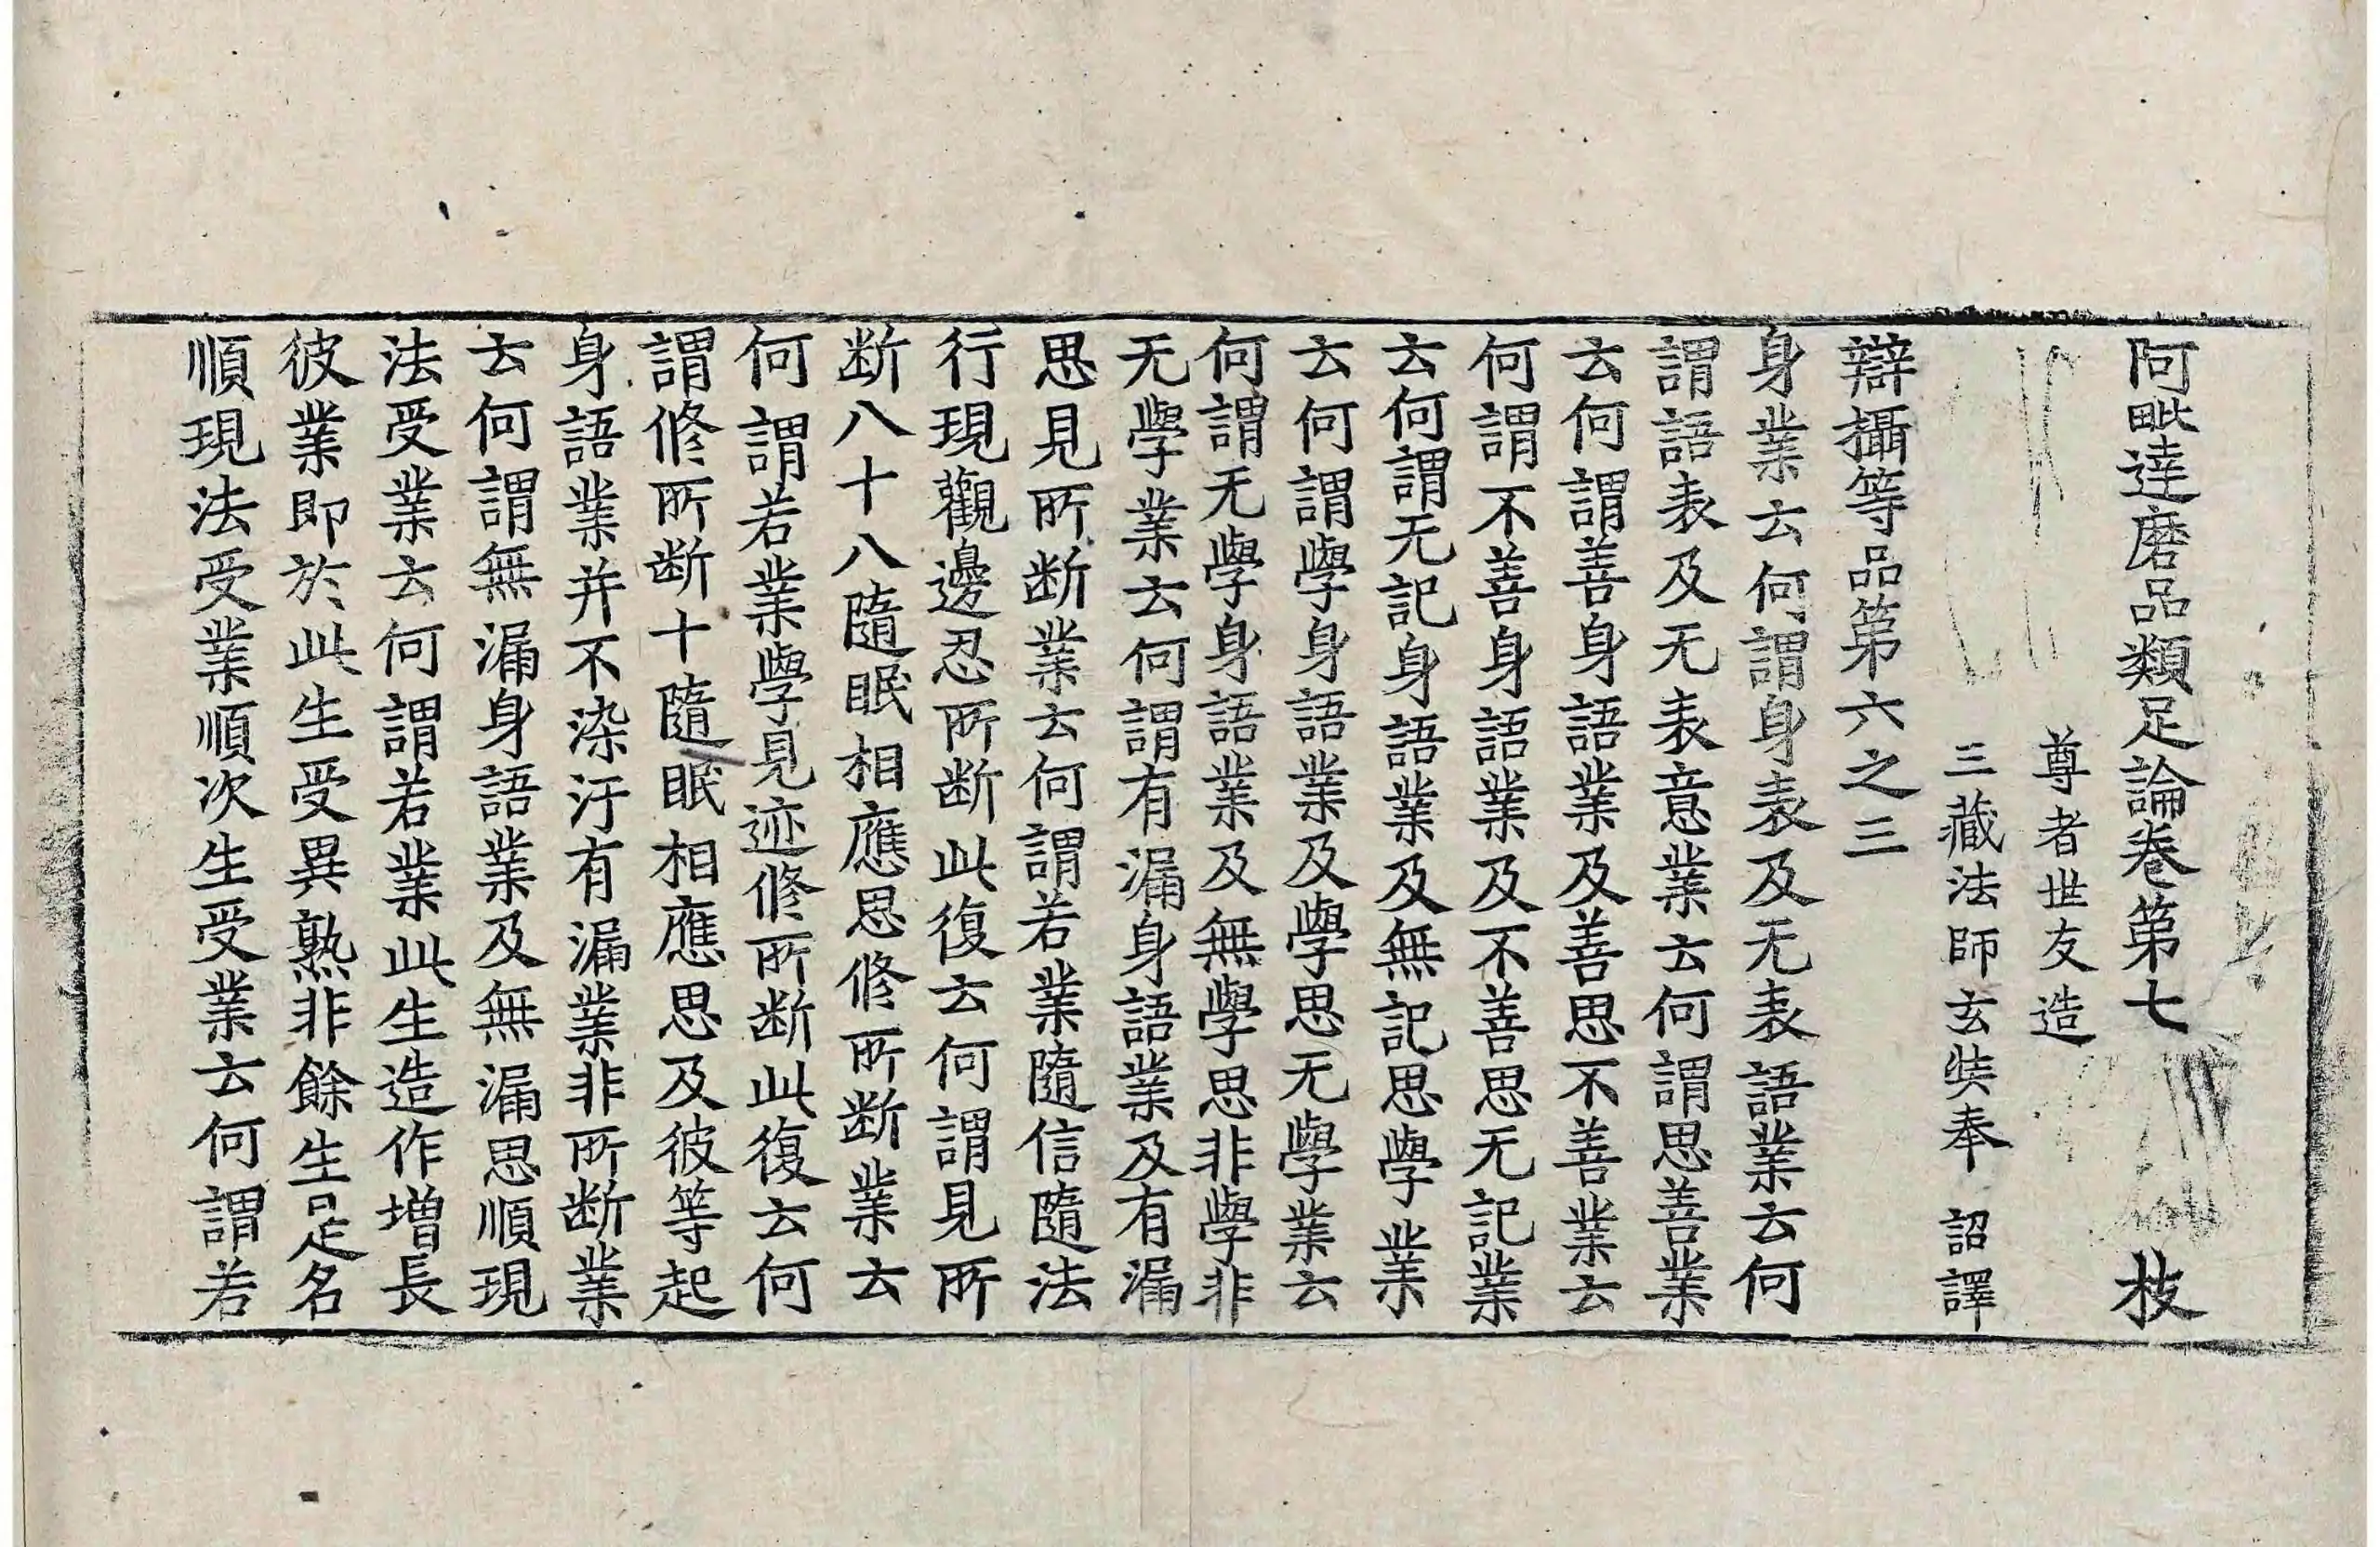 阿毗達磨品類足論卷第七 枝
尊者世友造
三藏法師玄奘奉 詔譯
辯攝等品第六之三
身業云何謂身表及无表語業云何
謂語表及无表意業云何謂思善業
云何謂善身語業及善思不善業云
何謂不善身語業及不善思无記業
云何謂无記身語業及無記思學業
云何謂學身語業及學思无學業云
何謂无學身語業及無學思非學非
无學業云何謂有漏身語業及有漏
思見所断業云何謂若業隨信隨法
行現觀邊忍所断此復云何謂見所
断八十八隨眠相應思修所断業云
何謂若業學見迹修所断此復云何
謂修所断十隨眠相應思及彼等起
身語業并不染汙有漏業非所断業
云何謂無漏身語業及無漏思順現
法受業云何謂若業此生造作增長
彼業即於此生受異熟非餘生是名
順現法受業順次生受業云何謂若